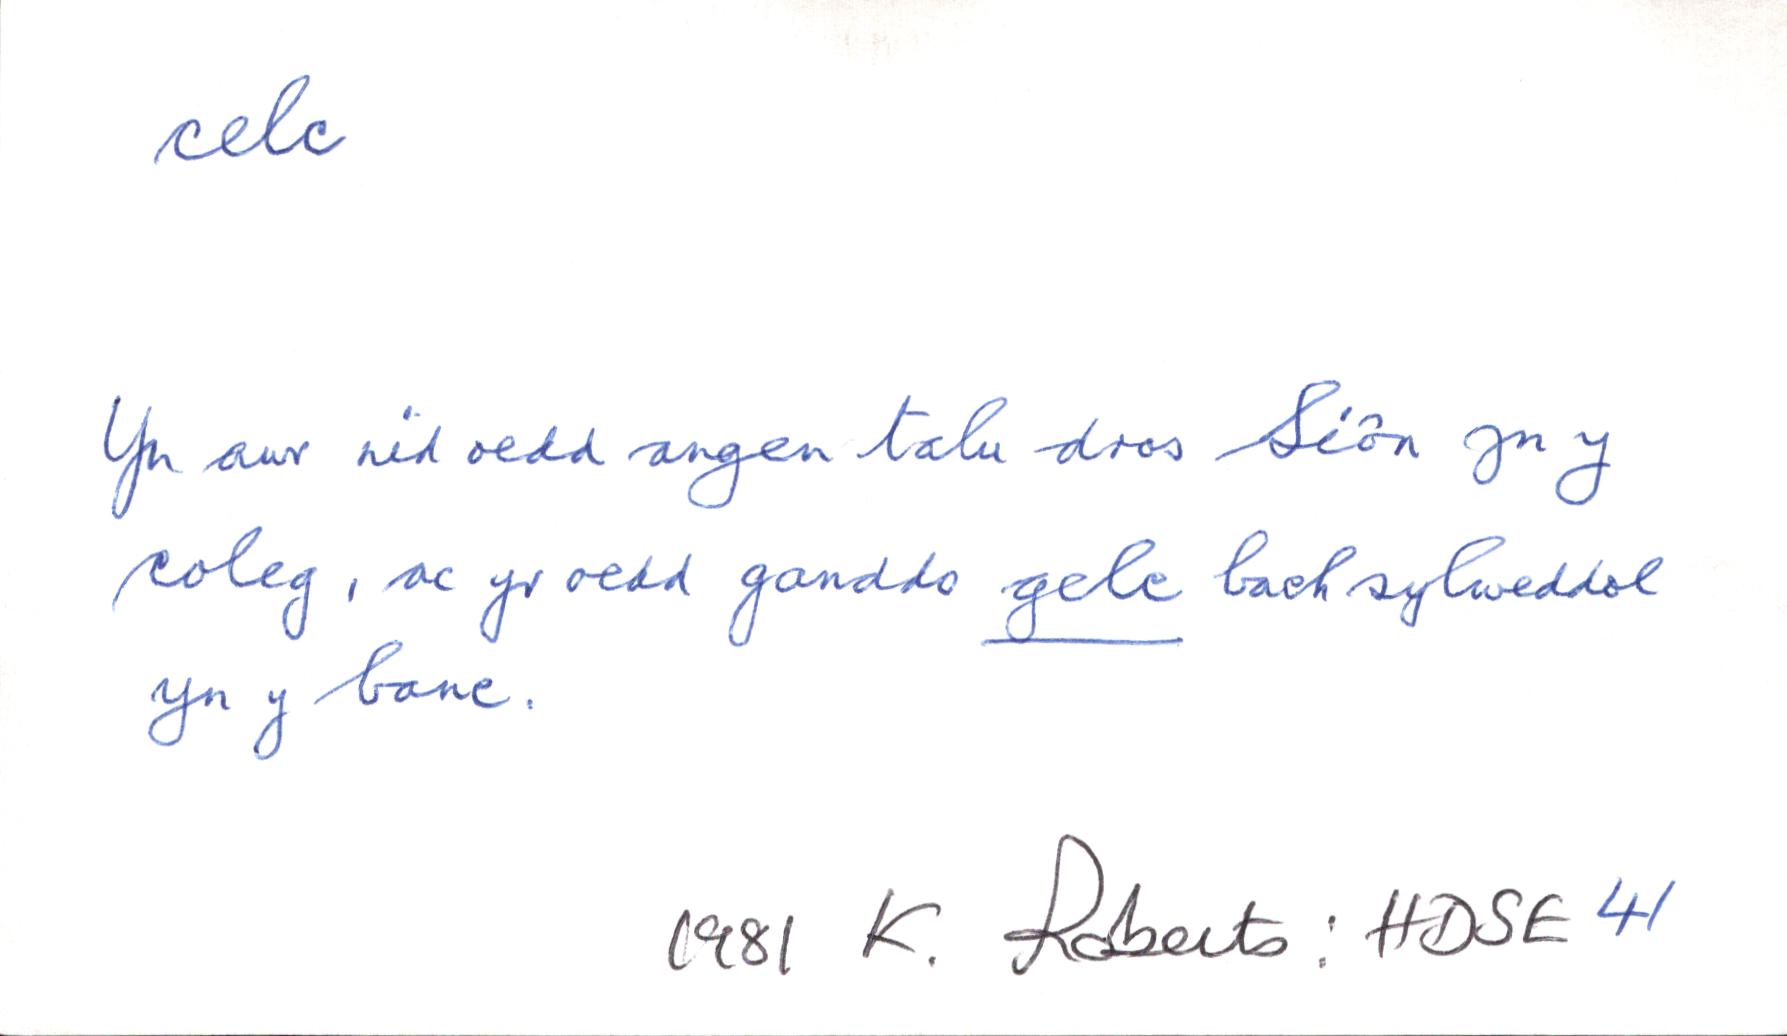 celc
Yn awr nid oedd angen talu dros Siôn yn y
coleg, ac yr oedd ganddo gelc bach sylweddol
yn y banc.
1981 K. Roberts: HDSE 41